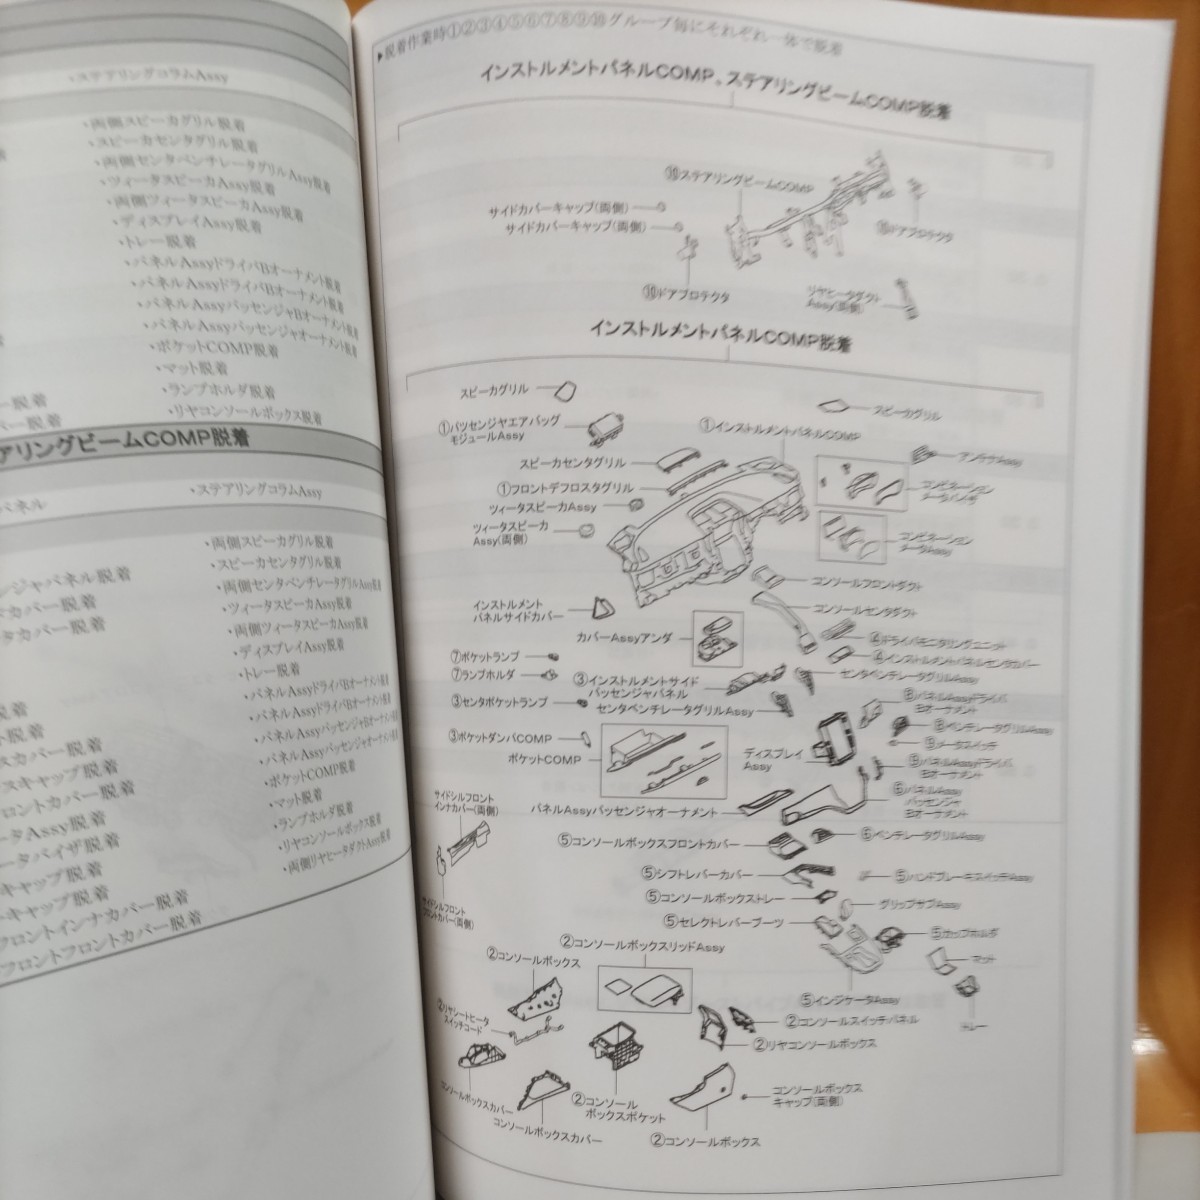 ・ステアリングコラムAssy
・両側スピーカグリル脱着
・スピーカセンタグリル脱着
・両側センタベンチレータグリルAssy脱着
・ツィータスピーカAssy脱着
・両側ツィータスピーカAssy脱着
・ディスプレイAssy脱着
・トレー脱着
・パネルAssyドライバBオーナメント脱着
・パネルAssyドライバBオーナメント脱着
・パネルAssyパッセンジャBオーナメント脱着
・パネルAssyパッセンジャオーナメント脱着
・ポケットCOMP脱着
・マット脱着
・ランプホルダ脱着
・リヤコンソールボックス脱着
ー脱着
バー脱着
アリングビームCOMP脱着
パネル
・ステアリングコラムAssy
・両側スピーカグリル脱着
・スピーカセンタグリル脱着
・両側センタベンチレータグリルAssy脱着
・ツィータスピーカAssy脱着
・両側ツィータスピーカAssy脱着
・ディスプレイAssy脱着
・トレー脱着
・パネルAssyドライバBオーナメント脱着
・パネルAssyドライバBオーナメント脱着
・パネルAssyパッセンジャBオーナメント脱着
・パネルAssyパッセンジャオーナメント脱着
・ポケットCOMP脱着
・マット脱着
・ランプホルダ脱着
・リヤコンソールボックス脱着
・両側リヤヒータダクトAssy脱着
ンジャパネル脱着
ドカバー脱着
タカバー脱着
脱着
ト脱着
スカバー脱着
スキャップ脱着
フロントカバー脱着
ータAssy脱着
ータバイザ脱着
キャップ脱着
ーキャップ脱着
フロントインナカバー脱着
フロントフロントカバー脱着
▶脱着作業時①②③④⑤⑥⑦⑧⑨⑩グループ毎にそれぞれ一体で脱着
インストルメントパネルCOMP、ステアリングビームCOMP脱着
⑩ステアリングビームCOMP
サイドカバーキャップ(両側)
サイドカバーキャップ(両側)
⑩ドアプロテクタ
⑩ドアプロテクタ
リヤヒータダクト
Assy(両側)
インストルメントパネルCOMP脱着
スピーカグリル
スピーカグリル
①パッセンジャエアバッグ
モジュールAssy
①インストルメントパネルCOMP
アンテナAssy
スピーカセンタグリル
①フロントデフロスタグリル
コンビネーション
メータバイザ
ツィータスピーカAssy
ツィータスピーカ
Assy(両側)
コンビネーション
メータAssy
コンソールフロントダクト
インストルメント
パネルサイドカバー
コンソールセンタダクト
カバーAssyアンダ
④ドライバモニタリングユニット
④インストルメントパネルセンタカバー
⑦ポケットランプ
⑦ランプホルダ
③インストルメントサイド
パッセンジャパネル
センタベンチレータグリルAssy
③センタポケットランプ
センタベンチレータグリルAssy
⑧パネルAssyドライバ
Bオーナメント
⑧ベンチレータグリルAssy
③ポケットダンパCOMP
ポケットCOMP
ディスプレイ
Assy
⑨メータスイッチ
⑨パネルAssyドライバ
Bオーナメント
⑥パネルAssy
パッセンジャ
Bオーナメント
サイドシルフロント
インナカバー(両側)
パネルAssyパッセンジャオーナメント
⑤コンソールボックスフロントカバー
⑥ベンチレータグリルAssy
⑤シフトレバーカバー
⑤ハンドブレーキスイッチAssy
サイドシルフロント
フロントカバー(両側)
⑤コンソールボックストレー
グリップサブAssy
⑤セレクトレバーブーツ
⑤カップホルダ
②コンソールボックスリッドAssy
マット
②コンソールボックス
⑤インジケータAssy
トレー
②リヤシートヒータ
スイッチコード
②コンソールスイッチパネル
②リヤコンソールボックス
コンソールボックスカバー
②コンソール
ボックスポケット
コンソールボックス
キャップ(両側)
コンソールボックスカバー
②コンソールボックス